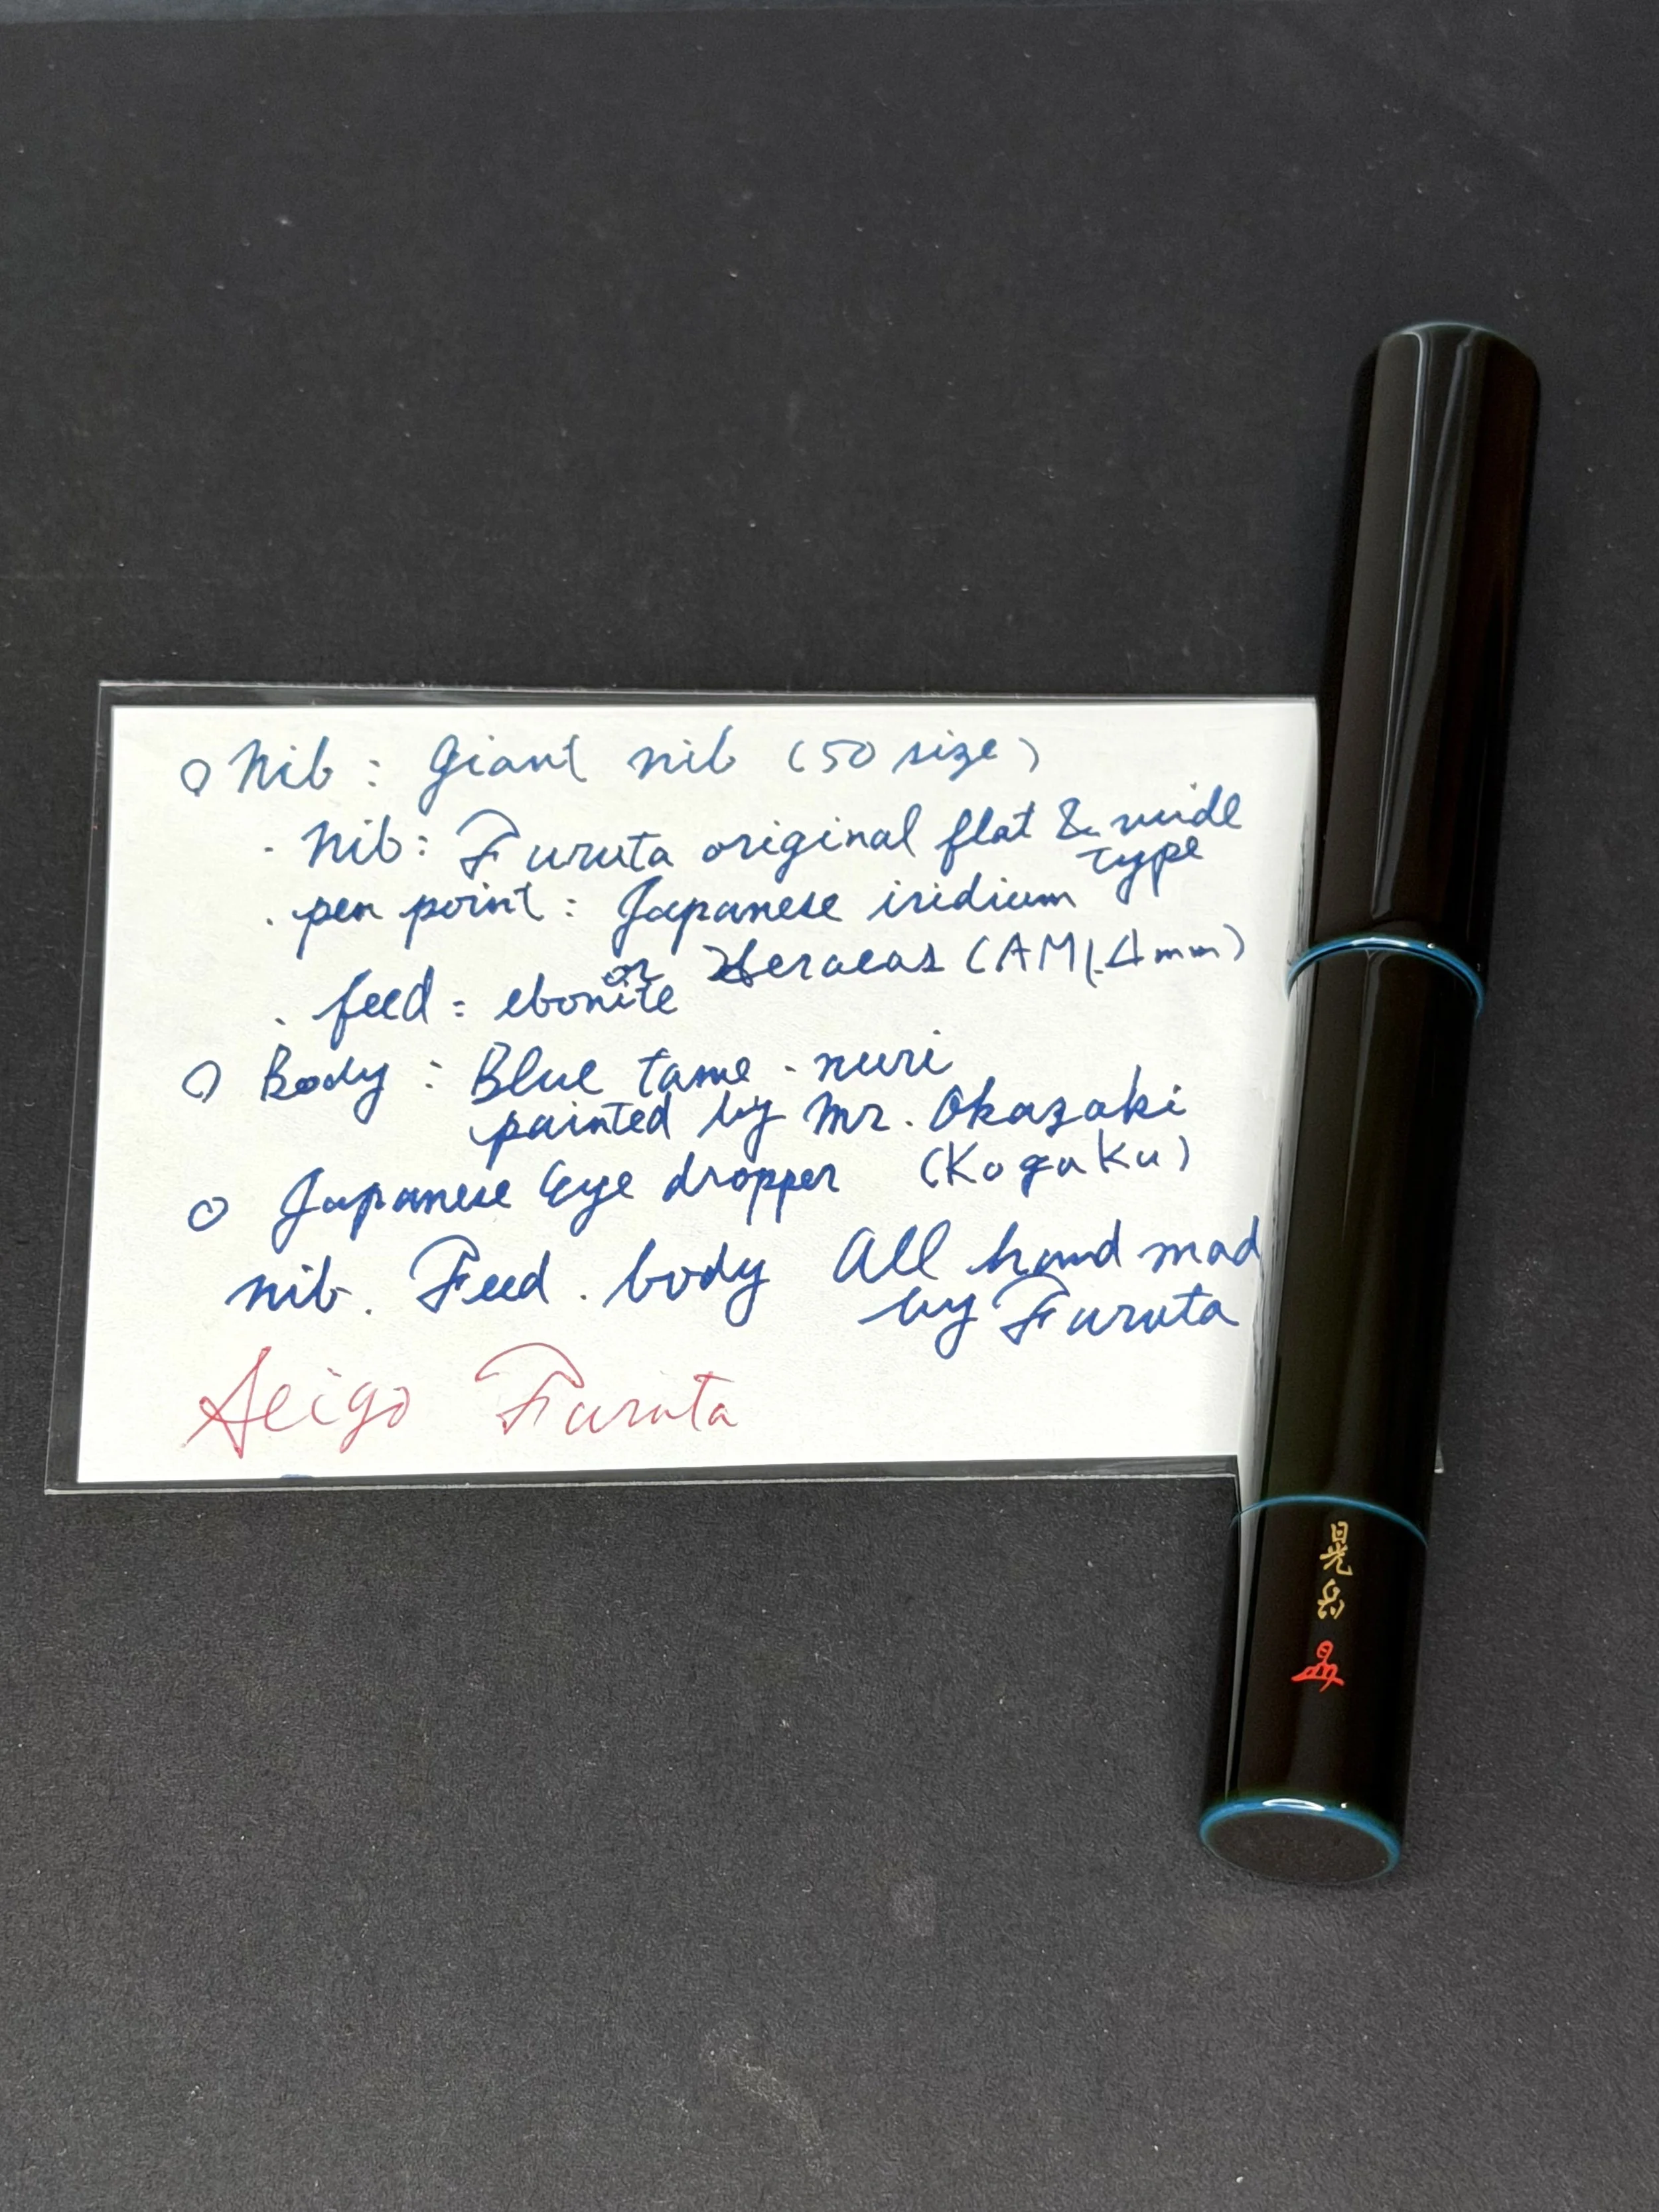 ○ Nib : Giant nib (50 size)
· Nib : Furuta original flat & wide
type
· pen point : Japanese iridium
or Heraeas (AM1.4mm)
· feed : ebonite
○ Body : Blue tame-nuri
painted by Mr. Okazaki
(Kogaku)
○ Japanese Eye dropper
nib. Feed. body All hand mad
by Furuta
Seigo Furuta
晃岳